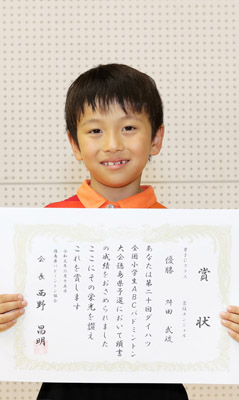 賞状
優勝
舛田 武竣
あなたは第二十回ダイハツ
全国小学生ABCバドミントン
大会徳島県予選において頭書
の成績をおさめられました
ここにその栄光を讃え
これを賞します
会長 西野 昌明